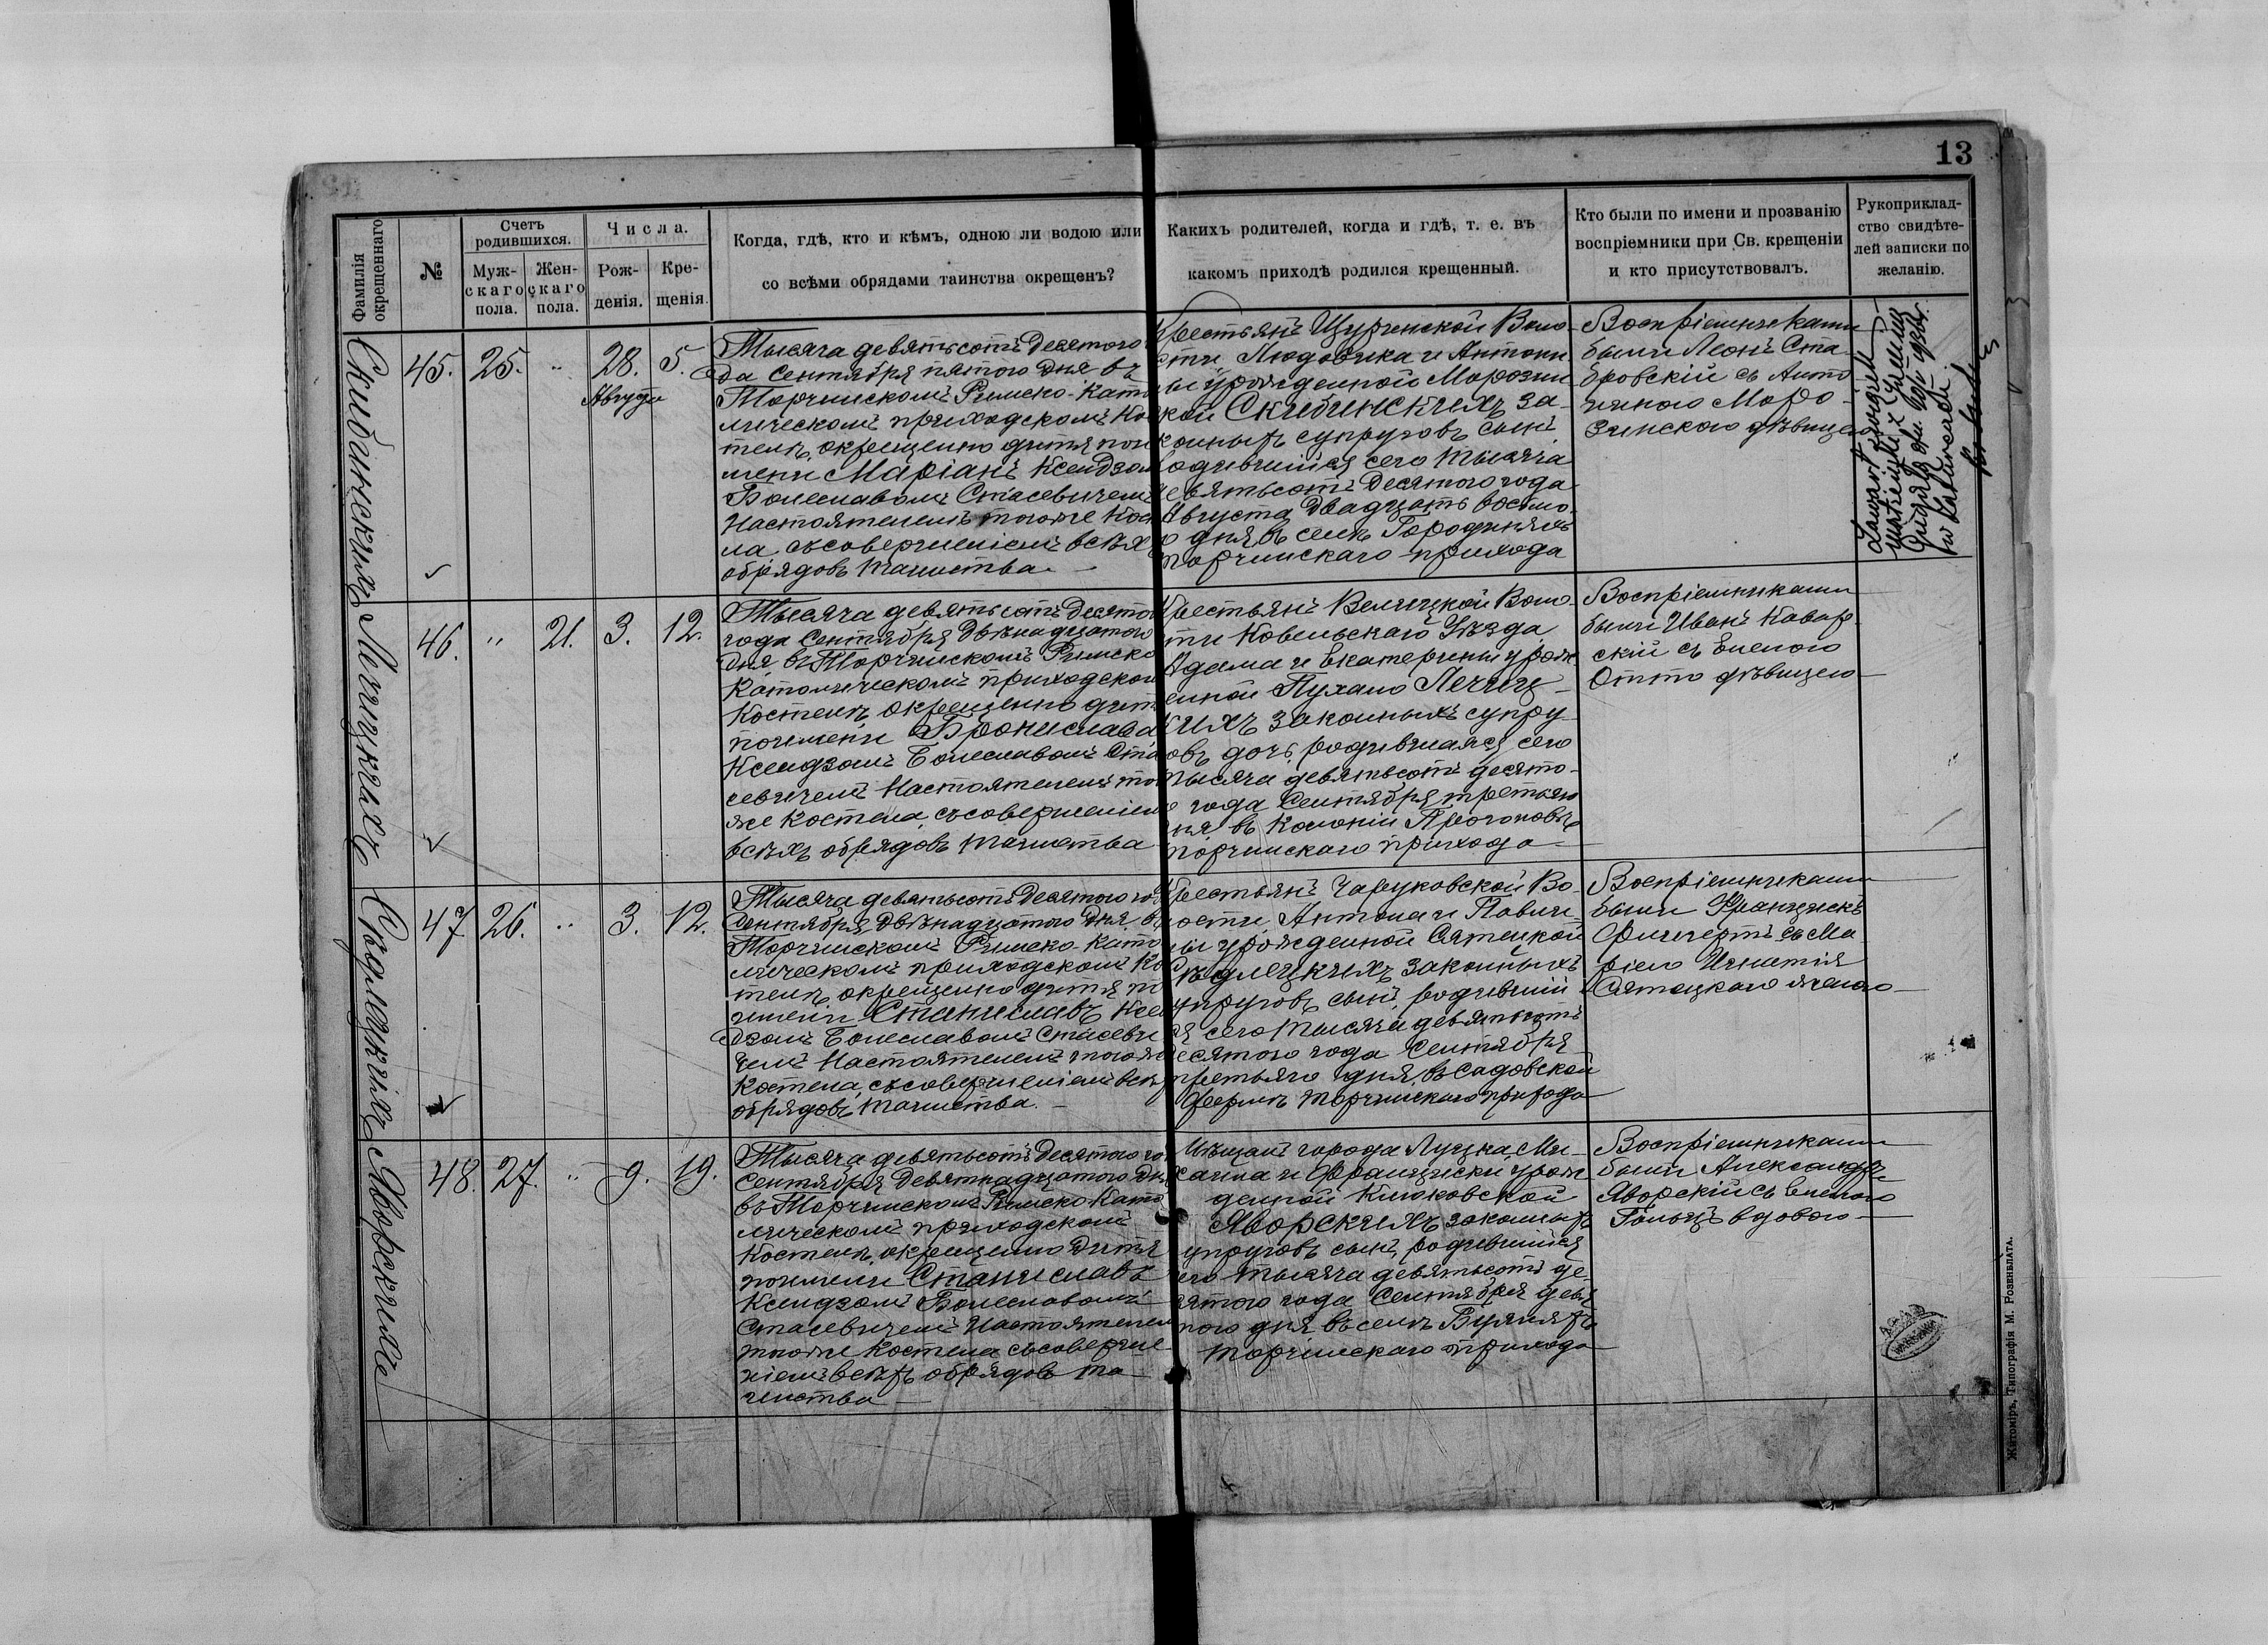 13
Фамилія окрещеннаго
№
Счетъ родившихся.
Муж-
скаго
пола.
Жен-
скаго
пола.
Числа.
Рож-
денія.
Кре-
щенія.
Когда, гдѣ, кто и кѣмъ, одною ли водою или
со всѣми обрядами таинства окрещенъ?
Какихъ родителей, когда и гдѣ, т. е. въ
какомъ приходѣ родился крещенный.
Кто были по имени и прозванію
воспріемники при Св. крещеніи
и кто присутствовалъ.
Рукоприклад-
ство свидѣте-
лей записки по
желанію.
Скибинскихъ
45. 25. " 28. 5.
Августа
Тысяча девятьсотъ Десятого
да Сентября пятого дня въ
Торчинскомъ Римско-Като
лическомъ приходскомъ Ко
телѣ, окрещено дитя по и
мени Маріанъ Ксендзом
Болеславомъ Стасевичемъ
Настоятелемъ того же Кос
ла съ совершеніемъ всѣх
обрядовъ таинства.
Крестьянъ Щуринской Воло-
сти Людовика и Антони
ны урожденной Морозин
кой Скибинскихъ за-
конныхъ супруговъ сынъ,
родившійся сего тысяча
девятьсотъ Десятого года
Августа двадцать восьмо
го дня въ селѣ Городиняхъ
Торчинскаго прихода
Воспріемниками
были Леонъ Ста
бровскій съ Анто
ниною Моро-
зинскою дѣвицею
Лечицкихъ
46. " 21. 3. 12.
Тысяча девятьсотъ Десято
года Сентября Двѣнадцатого
Дня въ Торчинскомъ Римско
Католическомъ приходском
Костелѣ, окрещено дит
по имени Бронислава
Ксендзомъ Болеславомъ Ста
севичемъ Настоятелемъ то
же Костела, съ совершеніем
всѣхъ обрядовъ таинства
Крестьянъ Велицкой Воло-
сти Ковельскаго Уѣзда
Адама и Екатерины урож
енной Пухало Лечиц-
кихъ законныхъ супру-
овъ дочь, родившаяся сего
тысяча девятьсотъ десято-
го года Сентября третьяго
дня въ Колоніи
Торчинскаго прихода
Воспріемниками
были Иванъ Кавар
скій съ Еленою
Отто дѣвицею
Сѣдлецкихъ
47 26. " 3. 12.
Тысяча девятьсотъ Десятого го
Сентября Двѣнадцатого Дня въ
Торчинскомъ Римско Като
лическомъ приходскомъ Ко
телѣ, окрещено дитя по
имени Станиславъ Ксен
дзомъ Болеславомъ Стасеви
чемъ Настоятелемъ того же
Костела, съ совершеніемъ всѣх
обрядовъ таинства.
Крестьянъ Чаруковской Во-
лости, Антона и Павли-
ны урожденной Сятецкой
Сѣдлецкихъ законныхъ
супруговъ сынъ, родившій
ся сего тысяча девятьсотъ
десятого года Сентября
третьяго дня, въ Садовской
фермѣ Торчинскаго прихода
Воспріемниками
были Францискъ
съ Ма
ріею Игнатія
Сятецкаго женою
Яворскихъ
48. 27. " 9. 19.
Тысяча девятьсотъ Десятого го
Сентября Девятнадцатого Дня
въ Торчинскомъ Римско Като
лическомъ приходскомъ
Костелѣ, окрещено Дитя
по имени Станиславъ
Ксендзомъ Болеславомъ
Стасевичемъ Настоятелем
того же Костела съ соверше
ніемъ всѣхъ обрядовъ та
инства
Мѣщанъ города Луцка, Ми-
хаила и Францишки урож-
денной Клюковской
Яворскихъ законныхъ
супруговъ сынъ, родившійся
сего тысяча девятьсотъ де-
сятого года Сентября девя
того дня въ селѣ Буяняхъ
Торчинскаго прихода
Воспріемниками
были Александръ
Яворскій съ Еленою
Гольцъ вдовою
Житомиръ, Типографія М. Розенблата.